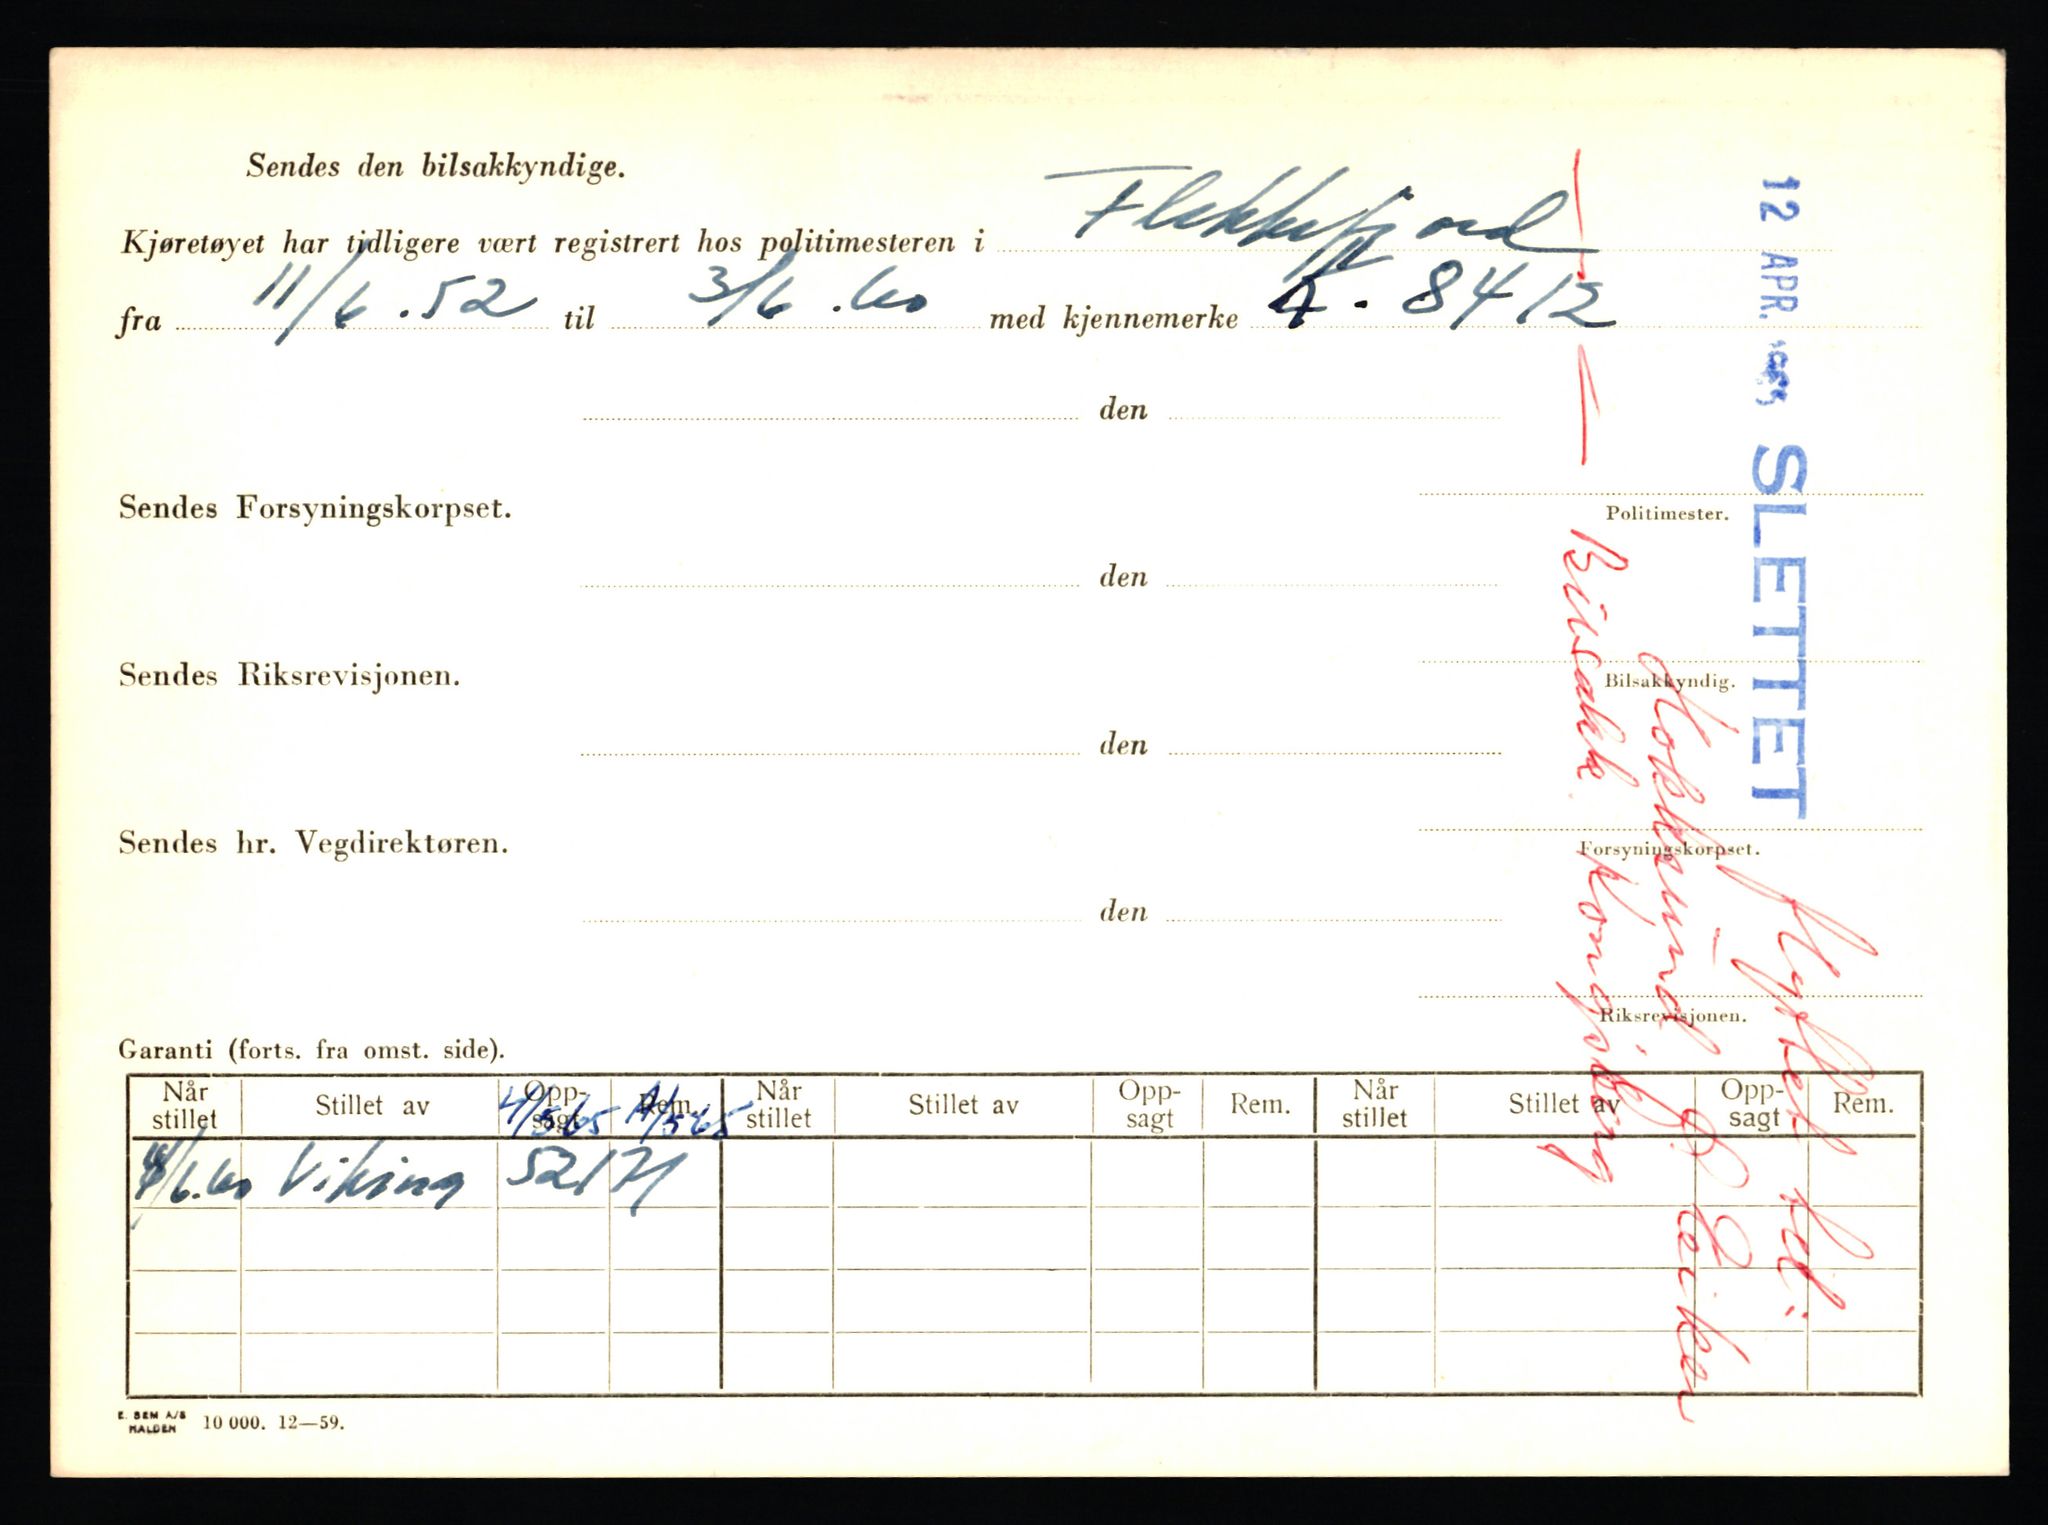 Sendes den bilsakkyndige.
Kjøretøyet har tidligere vært registrert hos politimesteren i Flekkefjord
fra 11/6.52 til 3/6.60 med kjennemerke 8412
den
Politimester.
Sendes Forsyningskorpset.
den
Bilsakkyndig.
Sendes Riksrevisjonen.
den
Forsyningskorpset.
Sendes hr. Vegdirektøren.
den
Riksrevisjonen.
Garanti (forts. fra omst. side).
Når stillet Stillet av Opp-sagt Rem. Når stillet Stillet av Opp-sagt Rem. Når stillet Stillet av Opp-sagt Rem.
4/5 65
/6.60 Viking 52171
E. SEM A/S
HALDEN
10 000. 12—59.
12 APR.
SLETTET
flyttet til:
Hokksund Ø. Eiker
Bilsakk. Kongsberg